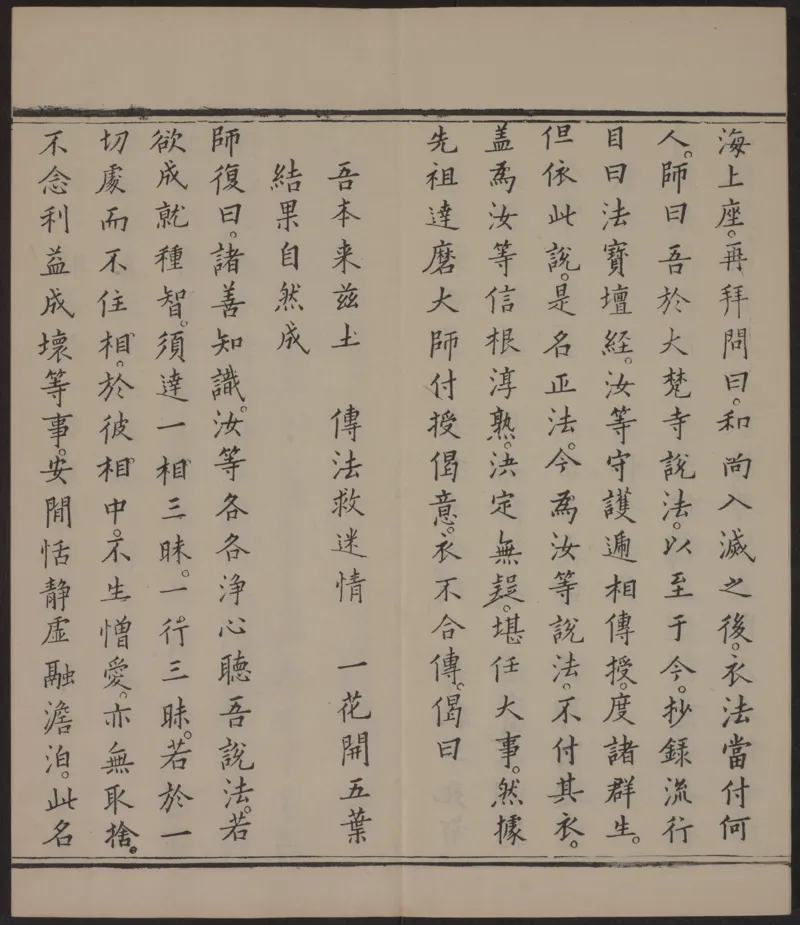 海上座。再拜問曰。和尚入滅之後。衣法當付何
人。師曰吾於大梵寺說法。以至于今。抄錄流行
目曰法寶壇經。汝等守護遞相傳授。度諸群生。
但依此說。是名正法。今爲汝等說法。不付其衣。
盖爲汝等信根淳熟。決定無疑。堪任大事。然據
先祖達磨大師付授偈意。衣不合傳。偈曰
吾本来兹土　傳法救迷情　一花開五葉
結果自然成
師復曰。諸善知識。汝等各各淨心聽吾說法。若
欲成就種智。須達一相三昧。一行三昧。若於一
切處而不住相。於彼相中。不生憎愛。亦無取捨。
不念利益成壞等事。安閒恬靜虛融澹泊。此名